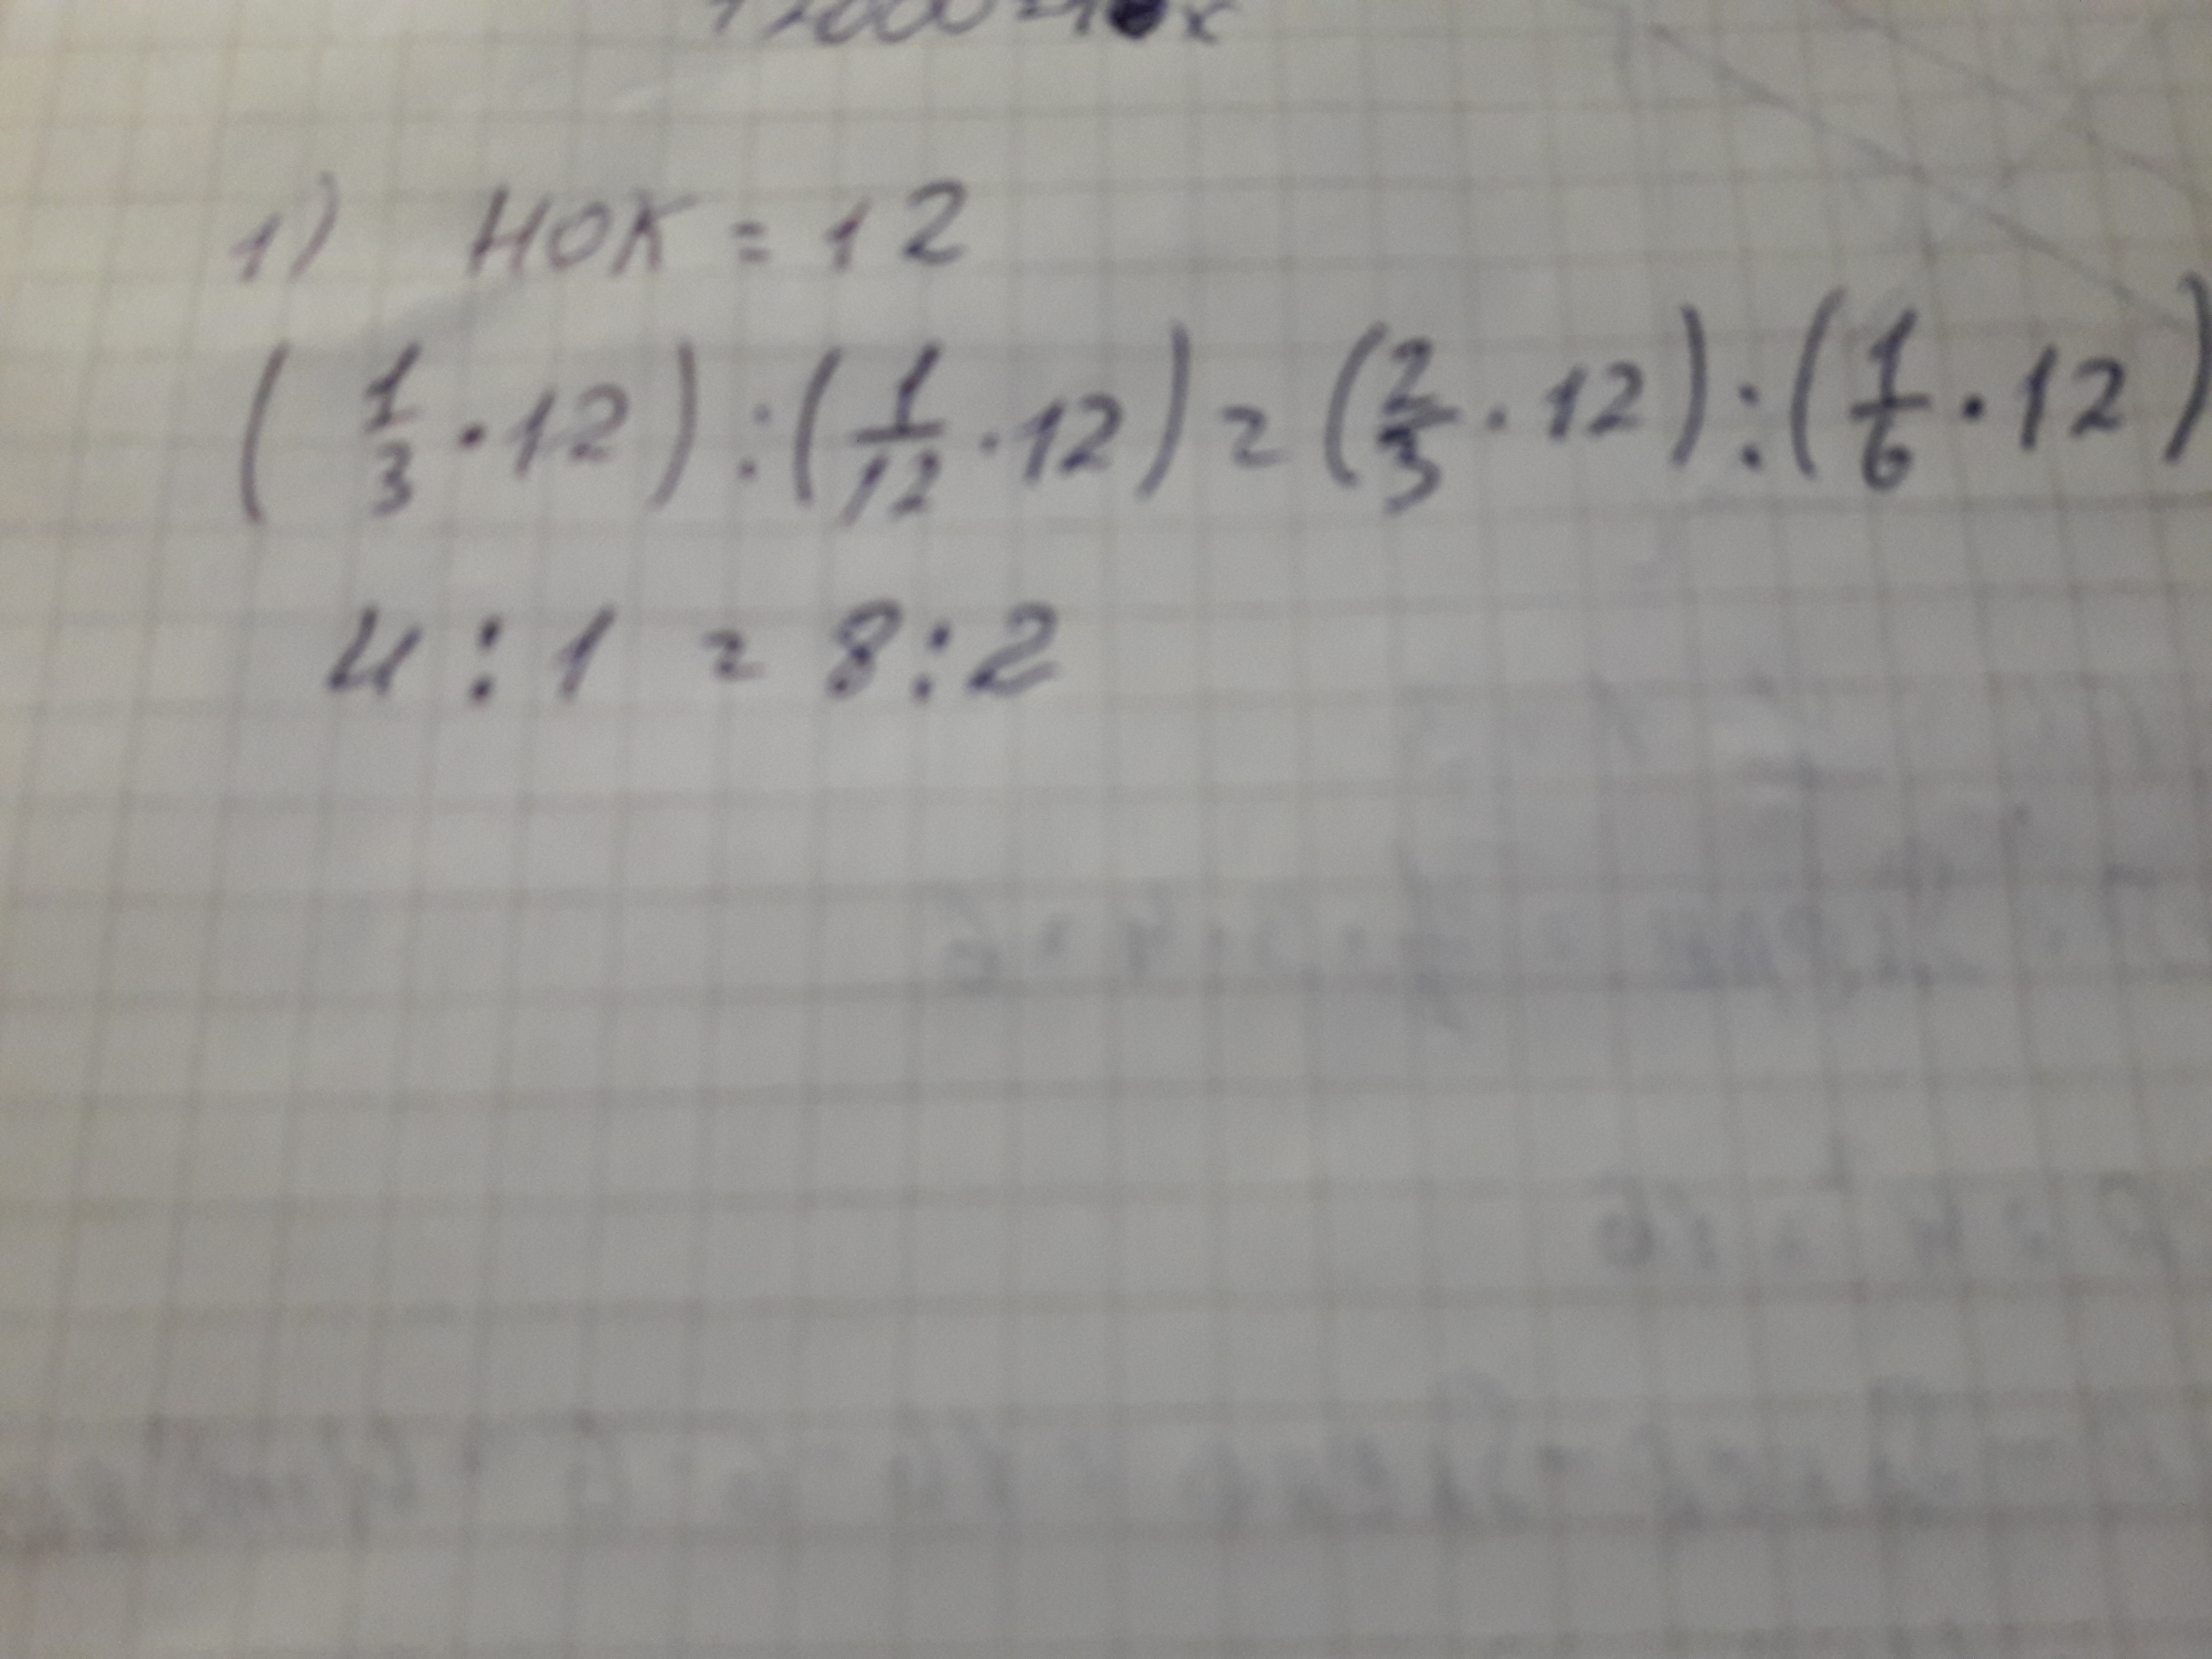 1) НОК = 12
( 1/3 · 12 ) : ( 1/12 · 12 ) = ( 2/3 · 12 ) : ( 1/6 · 12 )
4 : 1 = 8 : 2